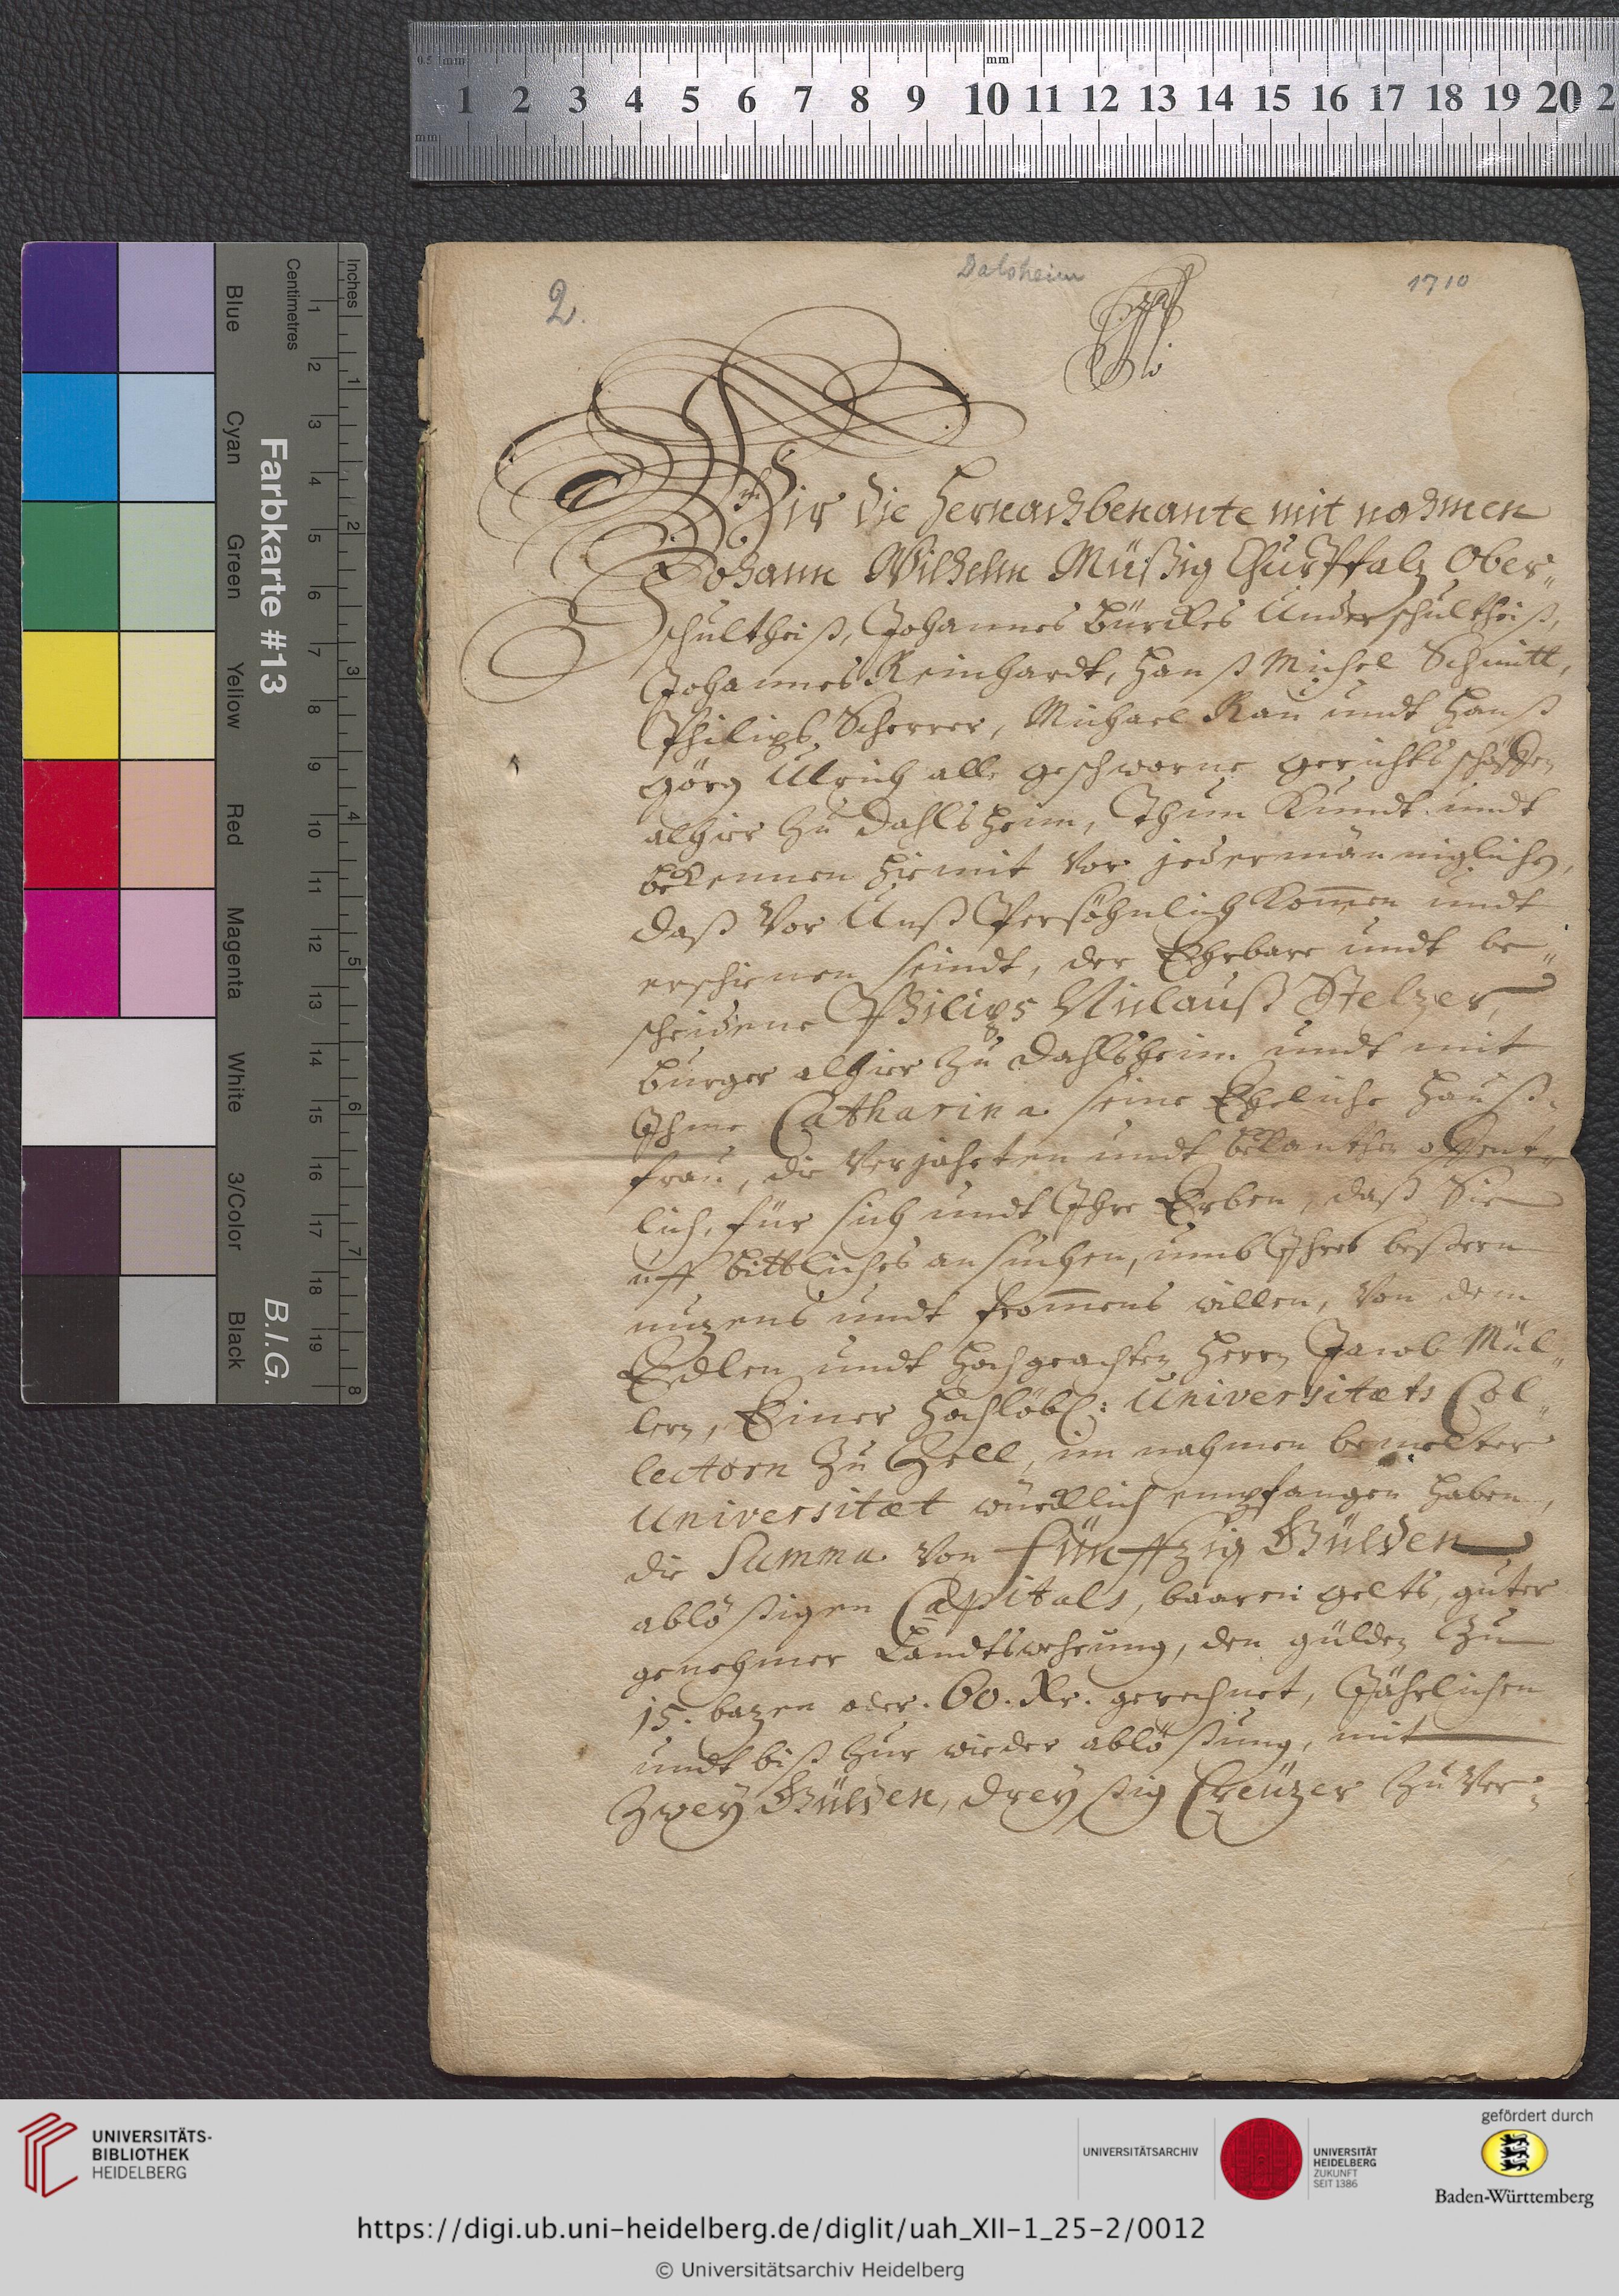 0.5 mm mm
1 2 3 4 5 6 7 8 9 10 11 12 13 14 15 16 17 18 19 20 2
mm
Inches 1 2 3 4 5 6 7 8
Centimetres 1 2 3 4 5 6 7 8 9 10 11 12 13 14 15 16 17 18 19
Farbkarte #13 B.I.G.
Blue Cyan Green Yellow Red Magenta White 3/Color Black
2.
Dalsheim
1710
Wir die hernachbenante mit nahmen
Johann Wilhelm Müßig ChurPfaltz Ober„
schultheiß, Johannes Bürckes Underschultheiß,
Johannes Reinhardt, Hanß Michel Schmitt,
Philips Scherrer, Michael Rau undt Hanß
Görg Ulrich alle geschworne gerichts schöffen
alhier zu Dahlsheim, Thun Kundt undt
bekennen hiemit Vor jedermänniglichen,
daß Vor Unß Persöhnlich kom̄en undt
erschienen seindt, der Ehrbare undt be„
scheidene Philips Niclauß Stelzer,
burger alhier zu Dahlsheim undt mit
Ihme Catharina seine Eheliche Hauß„
frau, die Verjahten undt bekanthen offent„
lich, für sich undt Ihre Erben, daß Sie
uff bittliches ansuchen, umb Ihres beßern
nuzens undt from̄ens willen, Von dem
Edlen undt hochgeachten Herrn Jacob Mül„
lern, Einer Hochlöbl: Universitæts Col„
lectorn zu Zell, im nahmen bemelter
Universitæt würcklich empfangen haben,
die Summa Von fünffzig Gülden
ablößigen Capitals, baaren gelts, guter
genehmer Landtswehrung, den gülden zu
15. bazen oder. 60. Xr. gerechnet, Jährlichen
undt biß zur wieder ablößung, mit
Zwey Gülden, dreyßig Creüzer zu Ver„
UNIVERSITÄTS-
BIBLIOTHEK
HEIDELBERG
UNIVERSITÄTSARCHIV
UNIVERSITÄT
HEIDELBERG
ZUKUNFT
SEIT 1386
gefördert durch
Baden-Württemberg
https://digi.ub.uni-heidelberg.de/diglit/uah_XII-1_25-2/0012
© Universitätsarchiv Heidelberg